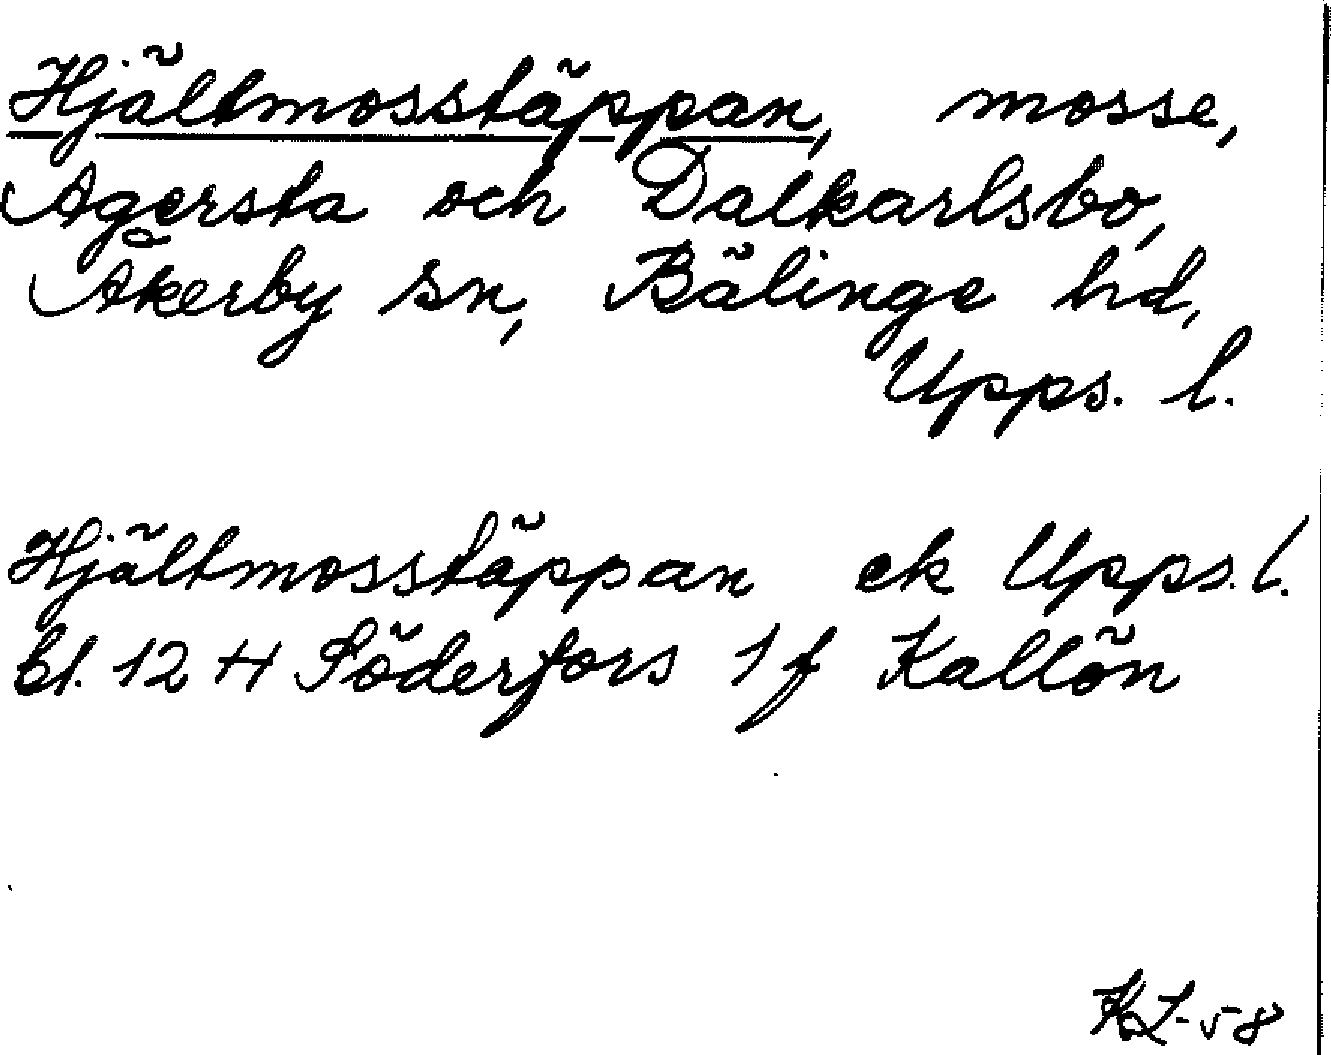 Hjältmosstäppan, mosse,
Agersta och Dalkarlsbo,
Åkerby sn, Bälinge hd,
Upps. l.
Hjältmosstäppan ek Upps. l.
bl. 12 H Söderfors 1 f Kallön
KL-58